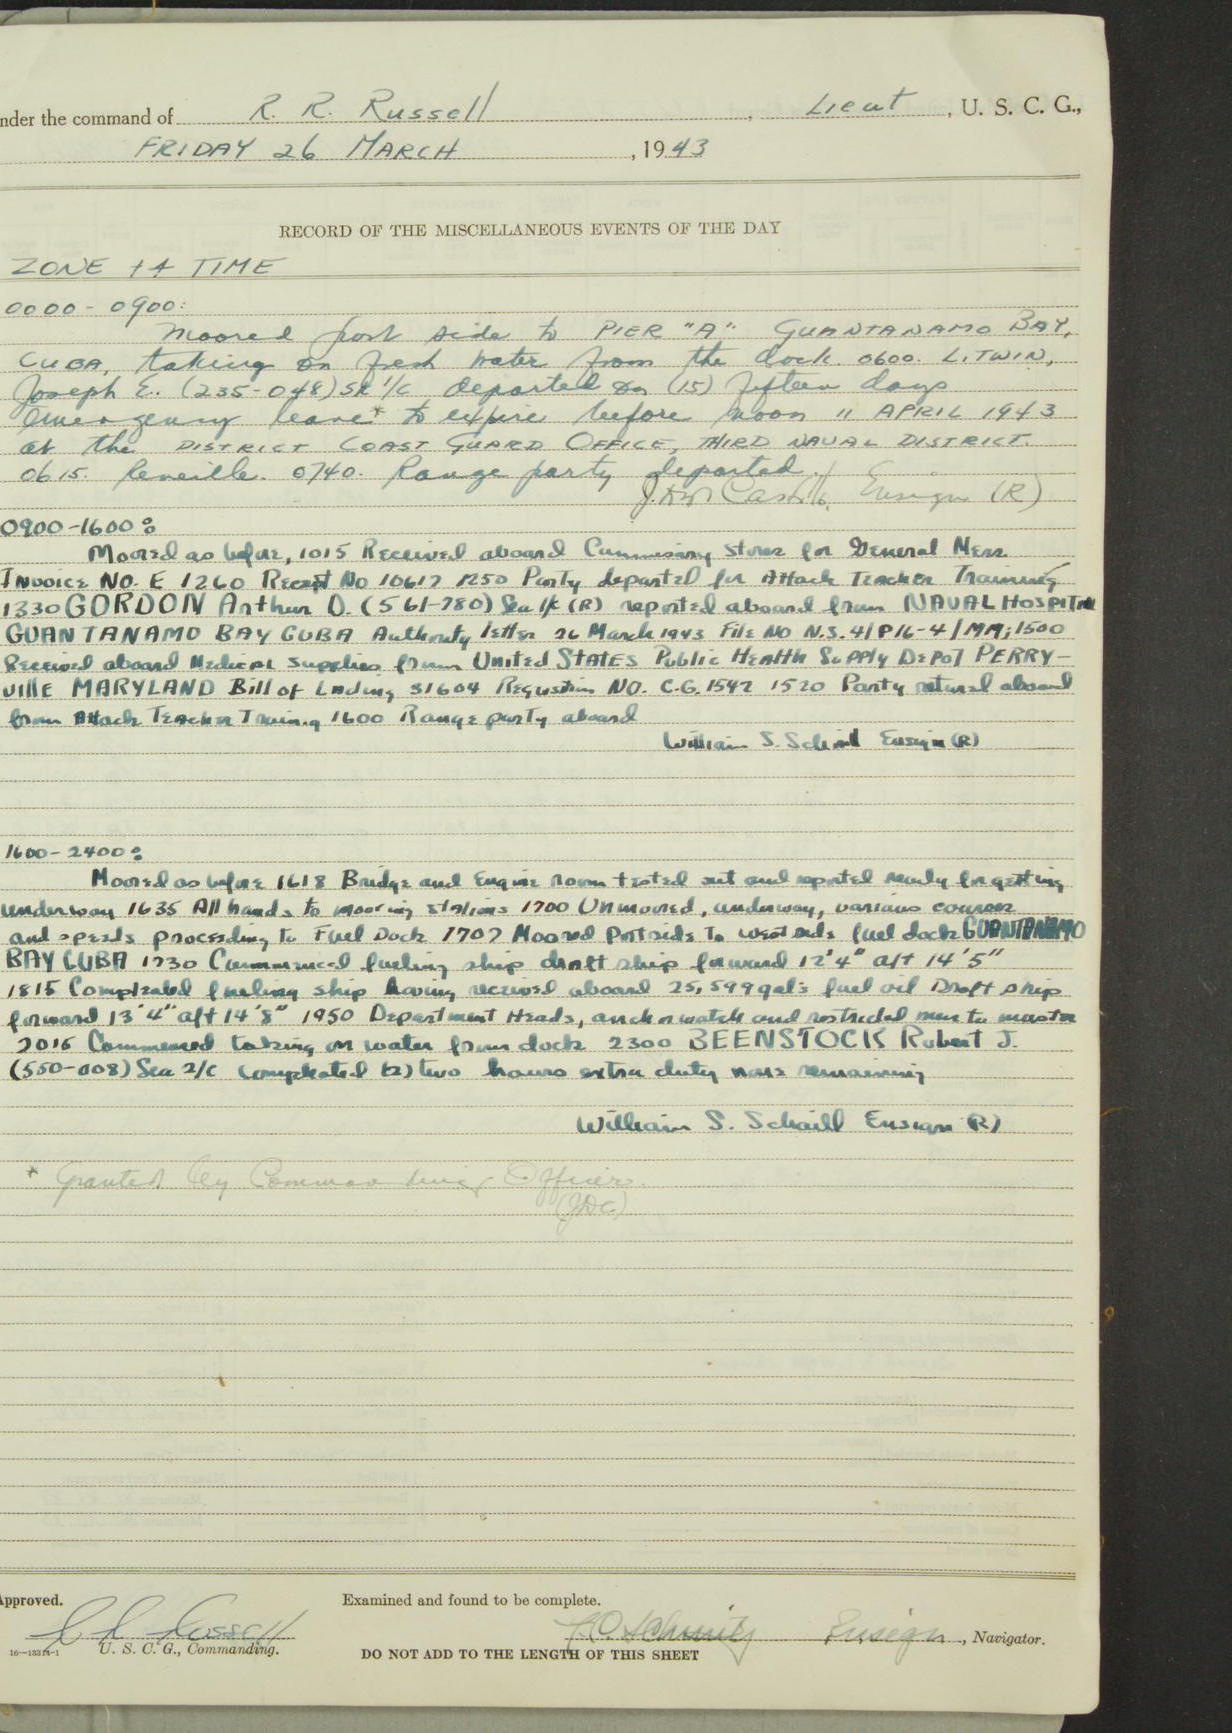 nder the command of R. R. Russell, Lieut, U. S. C. G.,
FRIDAY 26 MARCH, 1943
RECORD OF THE MISCELLANEOUS EVENTS OF THE DAY
ZONE +4 TIME
0000 - 0900:
Moored port side to PIER "A" GUANTANAMO BAY,
CUBA, taking on fresh water from the dock. 0600. LITWIN,
Joseph E. (235-048) SK 1/c departed on (15) fifteen days
emergency leave* to expire before noon 11 APRIL 1943
at the DISTRICT COAST GUARD OFFICE, THIRD NAVAL DISTRICT.
0615. Reveille. 0740. Range party departed.
Ensign (R)
0900-1600:
Moored as before, 1015 Received aboard Commissary Stores for General Mess
Invoice NO. E 1260 Receipt No 10617 1250 Party departed for Attack Teacher Training
1330 GORDON Arthur D. (561-780) Sea 1/c (R) reported aboard from NAVAL HOSPITAL
GUANTANAMO BAY CUBA Authority letter 26 March 1943 File NO N.S. 41/P16-4/MM; 1500
Received aboard Medical supplies from UNITED STATES Public Health Supply Depot PERRY-
VILLE MARYLAND Bill of Lading 31604 Requisition NO. C.G. 1542 1520 Party returned aboard
from Attack Teacher Training 1600 Range party aboard
William S. Schaill Ensign (R)
1600-2400:
Moored as before 1618 Bridge and Engine room tested out and reported ready for getting
underway 1635 All hands to mooring stations 1700 Unmoored, underway, various courses
and speeds proceeding to Fuel Dock 1707 Moored Portside To west side fuel dock GUANTANAMO
BAY CUBA 1730 Commenced fueling ship draft ship forward 12'4" aft 14'5"
1815 Completed fueling ship having received aboard 25,599 gal's fuel oil Draft ship
forward 13'4" aft 14'8" 1950 Department Heads, anchor watch and restricted men to muster
2015 Commenced taking on water from dock 2300 BEENSTOCK Robert J.
(550-008) Sea 2/c completed (2) two hours extra duty none remaining
William S. Schaill Ensign (R)
* Granted by Commanding Officer.
(JDC)
Approved.
Examined and found to be complete.
R R Russell
Ensign, Navigator.
U. S. C. G., Commanding.
DO NOT ADD TO THE LENGTH OF THIS SHEET